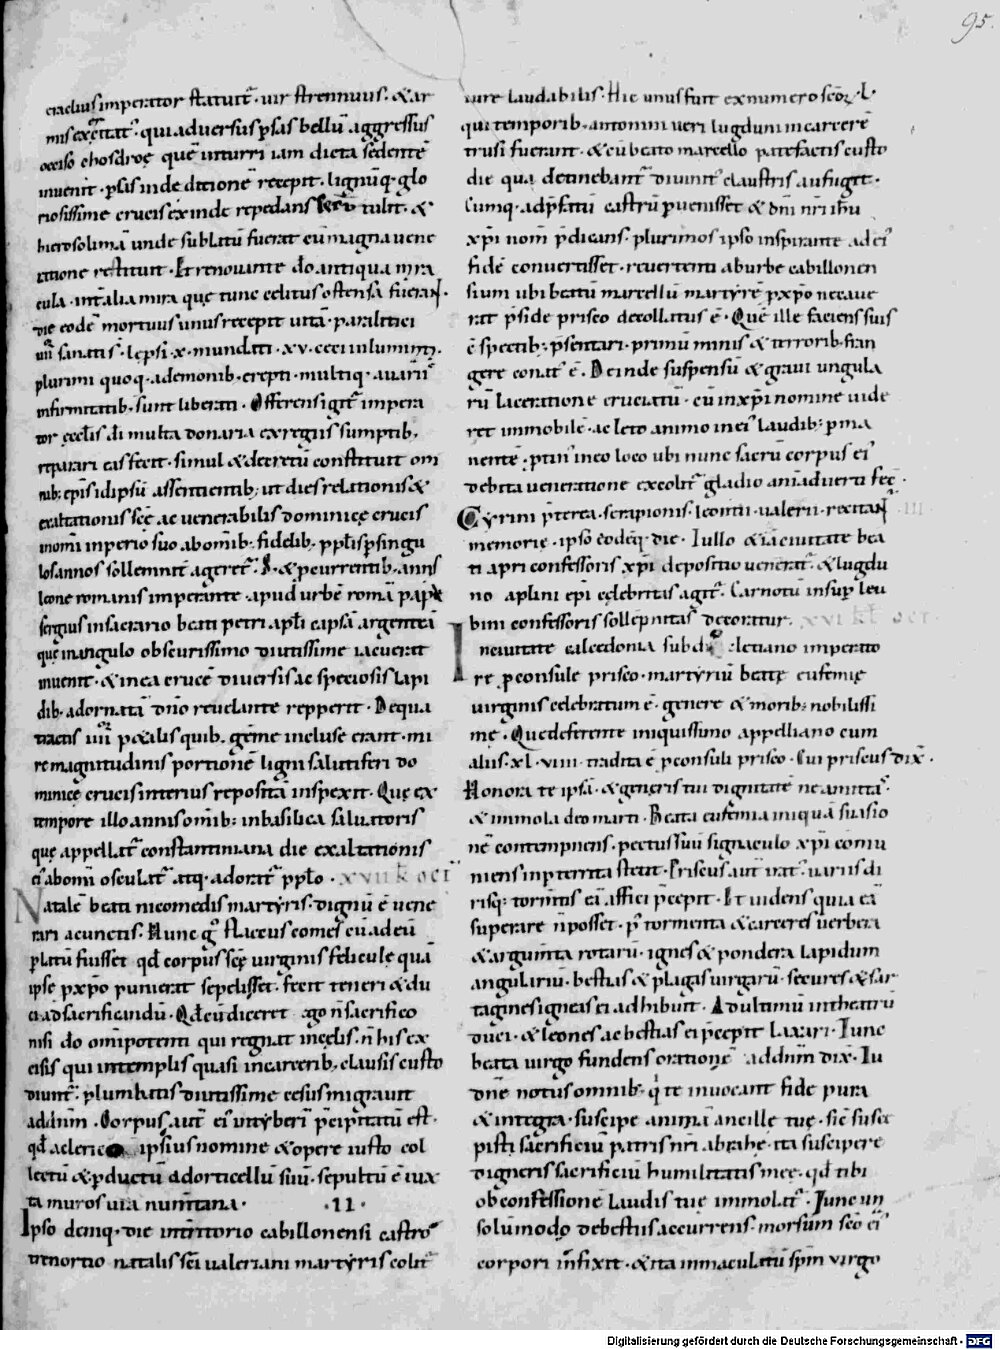 95.
eraclius imperator statuit᷑· uir strennuus· & ar
mis exercitat᷑· qui aduersus p̱sas bellū aggressus
occiso chosdroę quē inturri iam dicta sedentē
inuenit· p̱sis inde ditionē recepit· lignūq· glo
riosissimę crucis exinde repedans secū tulit· &
hierosolimā unde sublatū fuerat cū magna uene
ratione restituit· Et renouante dō antiqua mira
cula· intalia mira quę tunc celitus ostensa fuerant·
die eodē mortuus unus recepit uitā· paralitici
IIII sanatis· lepsi· x· mundati· xv· ceci inluminati·
plurimi quoq· ademonib· erepti· multiq· auariis
infirmitatib· sunt liberati· Offerens igit᷑ impera
tor ęcclis dī multa donaria ex regiis sumptib·
reparari eas fecit· simul & decretū constituit om
nib; epis idipsū assentientib; ut dies relationis &
exaltationis scę ac uenerabilis dominicę crucis
inomi inperio suo abomib; fidelib· pplis p̱ singu
los annos sollemnit᷑ ageret᷑· & p̱currentib· annis
leone romanis imperante· apud urbē romā papa
sergius insacrario beati petri apli capsā argenteā
quę inangulo obscurissimo diutissime iacuerat
inuenit· & inea crucē diuersis ac speciosis lapi
dib· adornatā dn̄o reuelante repperit· Dequa
tractis IIII petalis quib· gemę incluse erant· mi
re magnitudinis portionē ligni salutiferi do
minicę crucis interius repositā inspexit· Quę ex
tempore illo annis omib; inbasilica saluatoris
quę appellat᷑ constantiniana die exaltationis
ei᷒ abomī osculat᷑ atq· adorat᷑ pplo· xvii k oct̄
Natalē beati nicomedis martyris· dignū ē uene
rari acunctis· Nunc g° flaccus comes cū adeū
p̱latū fuisset qd corpus scę uirginis feliculę quā
ipse p xp̄o punierat sepelisset· fecit teneri & du
ci ad sacrificandū· Qd cū diceret ego n̄ sacrifico
nisi dō omīpotenti qui regnat incęlis· n̄ his ex
cisis qui intemplis quasi incarcerib; clausis custo
diunt᷑· plumbatis diutissime cęsus migrauit
addn̄m· Corpus aut̄ ei᷒ intyberī p̄cipitatū est·
qd aclerico ipsius nomine & opere iusto col
lectū & p̱ductū adorticellū suū· sepultū ē iux
ta muros uia numtana· ·II·
Ipso deniq· die interritorio cabillonensi castro
trenortio natalis scī ualeriani martyris colit᷑
iure laudabilis· Hic unus fuit ex numero scōꝝ·
qui temporib· antonini ueri lugduni incarcerē
trusi fuerant· & cū beato marcello patefactis custo
die qua detinebant᷑ diuinit᷒ claustris aufugit·
Cumq· adp̄fatū castrū p̱uenisset & dn̄i nr̄i ihū
xp̄i nom̄ p̄dicans· plurimos ipso inspirante ad ei᷒
fidē conuertisset· reuertenti aburbe cabillonen
sium ubi beatū marcellū martyrē p xp̄o necaue
rat p̄side prisco decollatus ē· Quē ille faciens suis
ē spectib; p̄sentari· primū minis & terrorib· fran
gere conat᷒ ē· Deinde suspensū & graui ungula
rū laceratione cruciatū· cū inxp̄i nomine uide
ret immobilē· ac lęto animo inei᷒ laudib; p̱ma
nentē· p̱tin᷒ ineo loco ubi nunc sacrū corpus ei᷒
debita ueneratione excolit᷑ gladio animaduerti fec̄·
Cyrini p̄terea· serapionis· leontii· ualerii· recitant᷑
memorię· ipso eodēq· die· Tullo & iaciuitate bea
ti apri confessoris xp̄i depositio uenerat᷑· & lugdu
no aplini epī celebritas agit᷑· Carnotū insup̱ leu
bini confessoris sollēpnitas decoratur· xvi kl oct·
Inciuitate calcedonia subdiocletiano imperato
re p̱consule prisco· martyriū beatę eufemię
uirginis celebratum ē· genere & morib; nobilissi
mę· Quę deferente iniquissimo appelliano cum
aliis· xl· viiii· tradita ē p̱consuli prisco· Cui priscus dix̄·
Honora te ipsā· & generis tui dignitatē ne amittas·
& immola deo marti· Beata eufemia iniquā suasio
nē contempnens· pectus suū signaculo xp̄i comu
niens inp̱territa stetit· Priscus aut̄ irat᷒· uariis di
risq; torm̄tis eā affici p̄cepit· Et uidens quia eā
superare n̄ posset· p᷒ tormenta & carceres uerbera
& argum̄ta rotarū· ignes & pondera lapidum
angulariū· bestias & plagas uirgarū· secures & sar
tagines igneas ei adhibuit· Ad ultimū intheatrū
duci· & leones ac bestias ei p̄cepit laxari· Tunc
beata uirgo fundens orationē addn̄m dix̄· Iu
dn̄e notus omnib· qi te inuocant fide pura
& integra· suscipe animā ancillę tuę· sic̄ susce
pisti sacrificiū patris nr̄i abrahę· ita suscipere
digneris sacrificiū humilitatis meę· qd tibi
ob confessionē laudis tuę immolat᷑· Tunc un᷒
solūmodo debestiis accurrens· morsum scō ei᷒
corpori infixit· & ita inmaculatū sp̄m uirgo
Digitalisierung gefördert durch die Deutsche Forschungsgemeinschaft - DFG